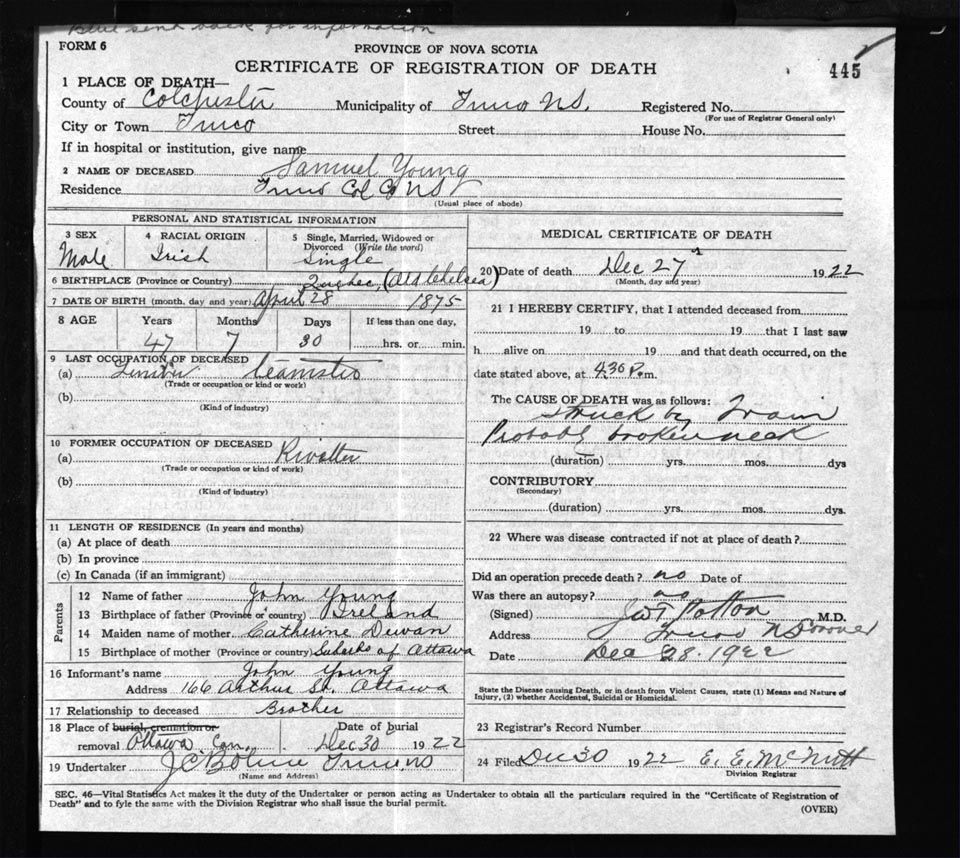 Blue send back for information
FORM 6
PROVINCE OF NOVA SCOTIA
CERTIFICATE OF REGISTRATION OF DEATH
445
1 PLACE OF DEATH—
County of Colchester Municipality of Truro N.S. Registered No.
(For use of Registrar General only)
City or Town Truro Street House No.
If in hospital or institution, give name
2 NAME OF DECEASED Samuel Young
Residence Truro Col Co NS
(Usual place of abode)
PERSONAL AND STATISTICAL INFORMATION
3 SEX
Male
4 RACIAL ORIGIN
Irish
5 Single, Married, Widowed or
Divorced (Write the word)
Single
6 BIRTHPLACE (Province or Country) Quebec, (Old Chelsea)
7 DATE OF BIRTH (month, day and year) April 28 1875
8 AGE Years Months Days If less than one day,
47 7 30 hrs. or min.
9 LAST OCCUPATION OF DECEASED
(a) teamster
(Trade or occupation or kind or work)
(b)
(Kind of industry)
10 FORMER OCCUPATION OF DECEASED
(a)
(Trade or occupation or kind of work)
(b)
(Kind of industry)
11 LENGTH OF RESIDENCE (In years and months)
(a) At place of death
(b) In province
(c) In Canada (if an immigrant)
Parents
12 Name of father John Young
13 Birthplace of father (Province or country) Ireland
14 Maiden name of mother Catherine Dewan
15 Birthplace of mother (Province or country) Suburbs of Ottawa
16 Informant's name John Young
Address 166 Arthur St. Ottawa
17 Relationship to deceased Brother
18 Place of burial, cremation or Date of burial
removal Ottawa Can. Dec 30 1922
19 Undertaker
(Name and Address)
MEDICAL CERTIFICATE OF DEATH
20 Date of death Dec 27 1922
(Month, day and year)
21 I HEREBY CERTIFY, that I attended deceased from
19 to 19 that I last saw
h alive on 19 and that death occurred, on the
date stated above, at 4.30 P.m.
The CAUSE OF DEATH was as follows:
Struck by Train
Probably broken neck
(duration) yrs. mos. dys
CONTRIBUTORY
(Secondary)
(duration) yrs. mos. dys.
22 Where was disease contracted if not at place of death?
Did an operation precede death? no Date of
Was there an autopsy? no
(Signed) M.D.
Address Truro NS
Date Dec 28. 1922
State the Disease causing Death, or in death from Violent Causes, state (1) Means and Nature of
Injury, (2) whether Accidental, Suicidal or Homicidal.
23 Registrar's Record Number
24 Filed Dec 30 1922 E. E. McNutt
Division Registrar
SEC. 46—Vital Statistics Act makes it the duty of the Undertaker or person acting as Undertaker to obtain all the particulars required in the "Certificate of Registration of
Death" and to fyle the same with the Division Registrar who shall issue the burial permit.
(OVER)